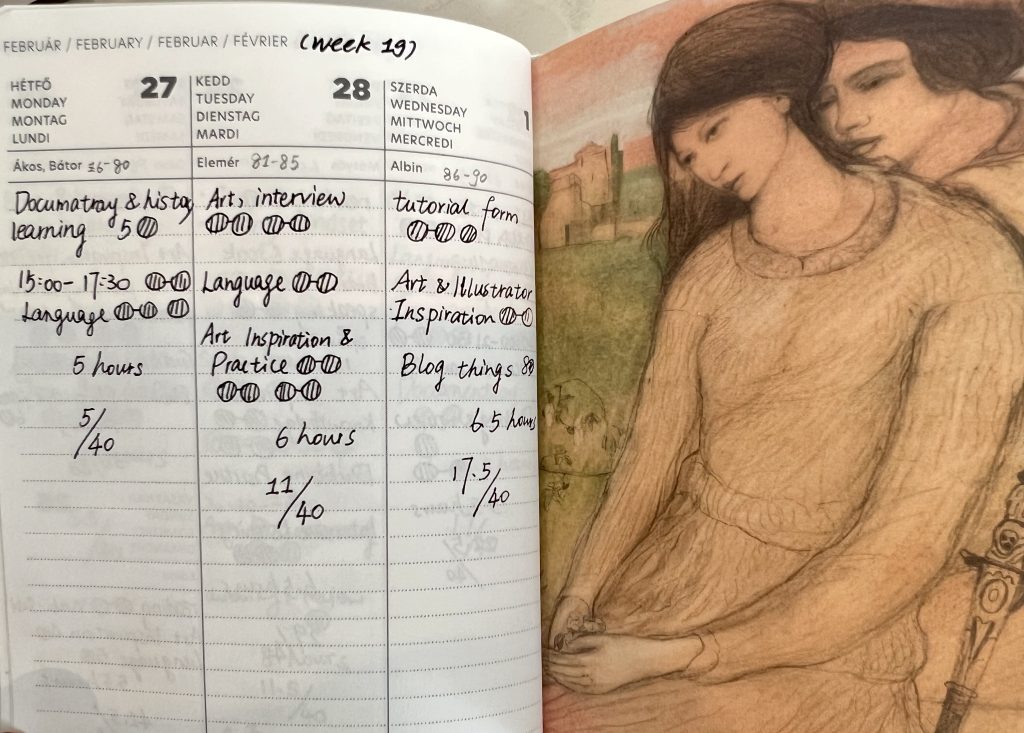 FEBRUÁR / FEBRUARY / FEBRUAR / FÉVRIER (week 19)
HÉTFŐ 27
MONDAY
MONTAG
LUNDI
Ákos, Bátor 76-80
Documatray & histoy
learning 5
15:00-17:30
Language
5 hours
5/40
KEDD 28
TUESDAY
DIENSTAG
MARDI
Elemér 81-85
Art, interview
Language
Art Inspiration &
Practice
6 hours
11/40
SZERDA 1
WEDNESDAY
MITTWOCH
MERCREDI
Albin 86-90
tutorial form
Art & Illustrator
Inspiration
Blog things
6.5 hours
17.5/40